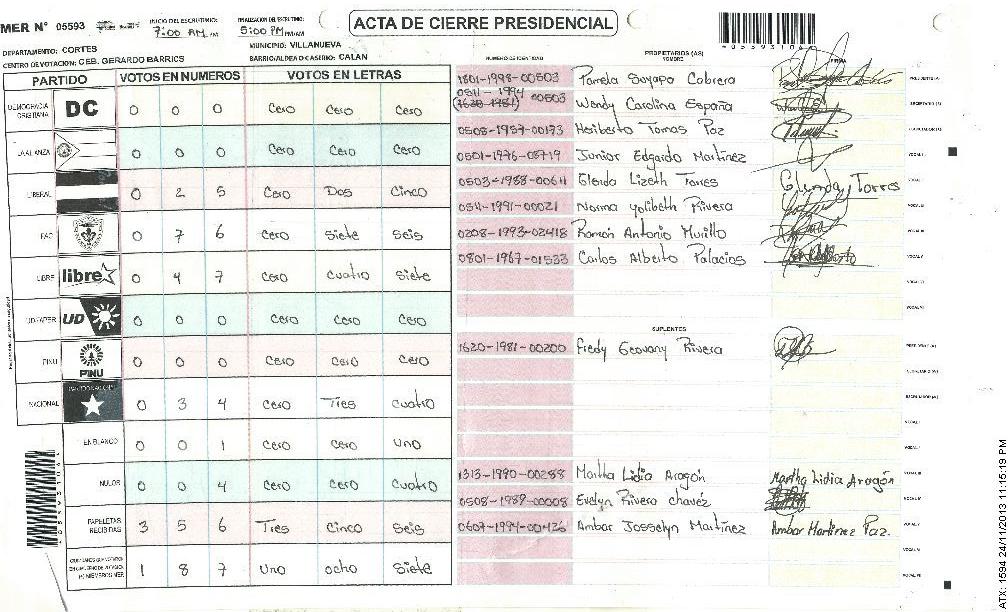 ACTA DE CIERRE PRESIDENCIAL
MER N° 05593
INICIO DEL ESCRUTINIO: 7:00 AM
FINALIZACION DEL ESCRUTINIO: 5:00 PM
05593106
DEPARTAMENTO: CORTES
MUNICIPIO: VILLANUEVA
CENTRO DE VOTACION: CEB. GERARDO BARRIOS
BARRIO/ALDEA O CASERIO: CALAN
PARTIDO VOTOS EN NUMEROS VOTOS EN LETRAS
DEMOCRACIA CRISTIANA DC 0 0 0 Cero Cero Cero
LA ALIANZA 0 0 0 Cero Cero Cero
LIBERAL 0 2 5 Cero Dos Cinco
PAC 0 7 6 Cero Siete Seis
LIBRE libre 0 4 7 Cero Cuatro Siete
UD-FAPER UD 0 0 0 Cero Cero Cero
PINU PINU 0 0 0 Cero Cero Cero
NACIONAL PARTIDO NACIONAL 0 3 4 Cero Tres Cuatro
EN BLANCO 0 0 1 Cero Cero Uno
NULOS 0 0 4 Cero Cero Cuatro
PAPELETAS RECIBIDAS 3 5 6 Tres Cinco Seis
1 8 7 Uno ocho Siete
NUMERO DE IDENTIDAD PROPIETARIOS (AS) NOMBRE FIRMA
1801-1998-00503 Pamela Sayapa Cabrera PRESIDENTE (A)
0511-1994 (1620-1981) 00503 Wendy Carolina España SECRETARIO (A)
0508-1957-00173 Heriberto Tomas Paz ESCRUTADOR (A)
0501-1976-08719 Junior Edgardo Martínez VOCAL I
0503-1988-00611 Glenda Lizeth Torres Glenda Torres VOCAL II
0511-1991-00021 Norma Yolibeth Rivera VOCAL III
0208-1993-02418 Ramón Antonio Murillo VOCAL IV
0801-1967-01533 Carlos Alberto Palacios VOCAL V
VOCAL VI
VOCAL VII
SUPLENTES
1620-1981-00200 Fredy Geovany Rivera PRESIDENTE (A)
SECRETARIO (A)
ESCRUTADOR (A)
VOCAL I
VOCAL II
1313-1990-00288 Martha Lidia Aragón Martha Lidia Aragón VOCAL III
0508-1989-00008 Evelyn Rivera chavéz VOCAL IV
0607-1994-00426 Ambar Josselyn Martínez Ambar Martinez Paz. VOCAL V
VOCAL VI
VOCAL VII
ATX: 1594 24/11/2013 11:15:19 PM